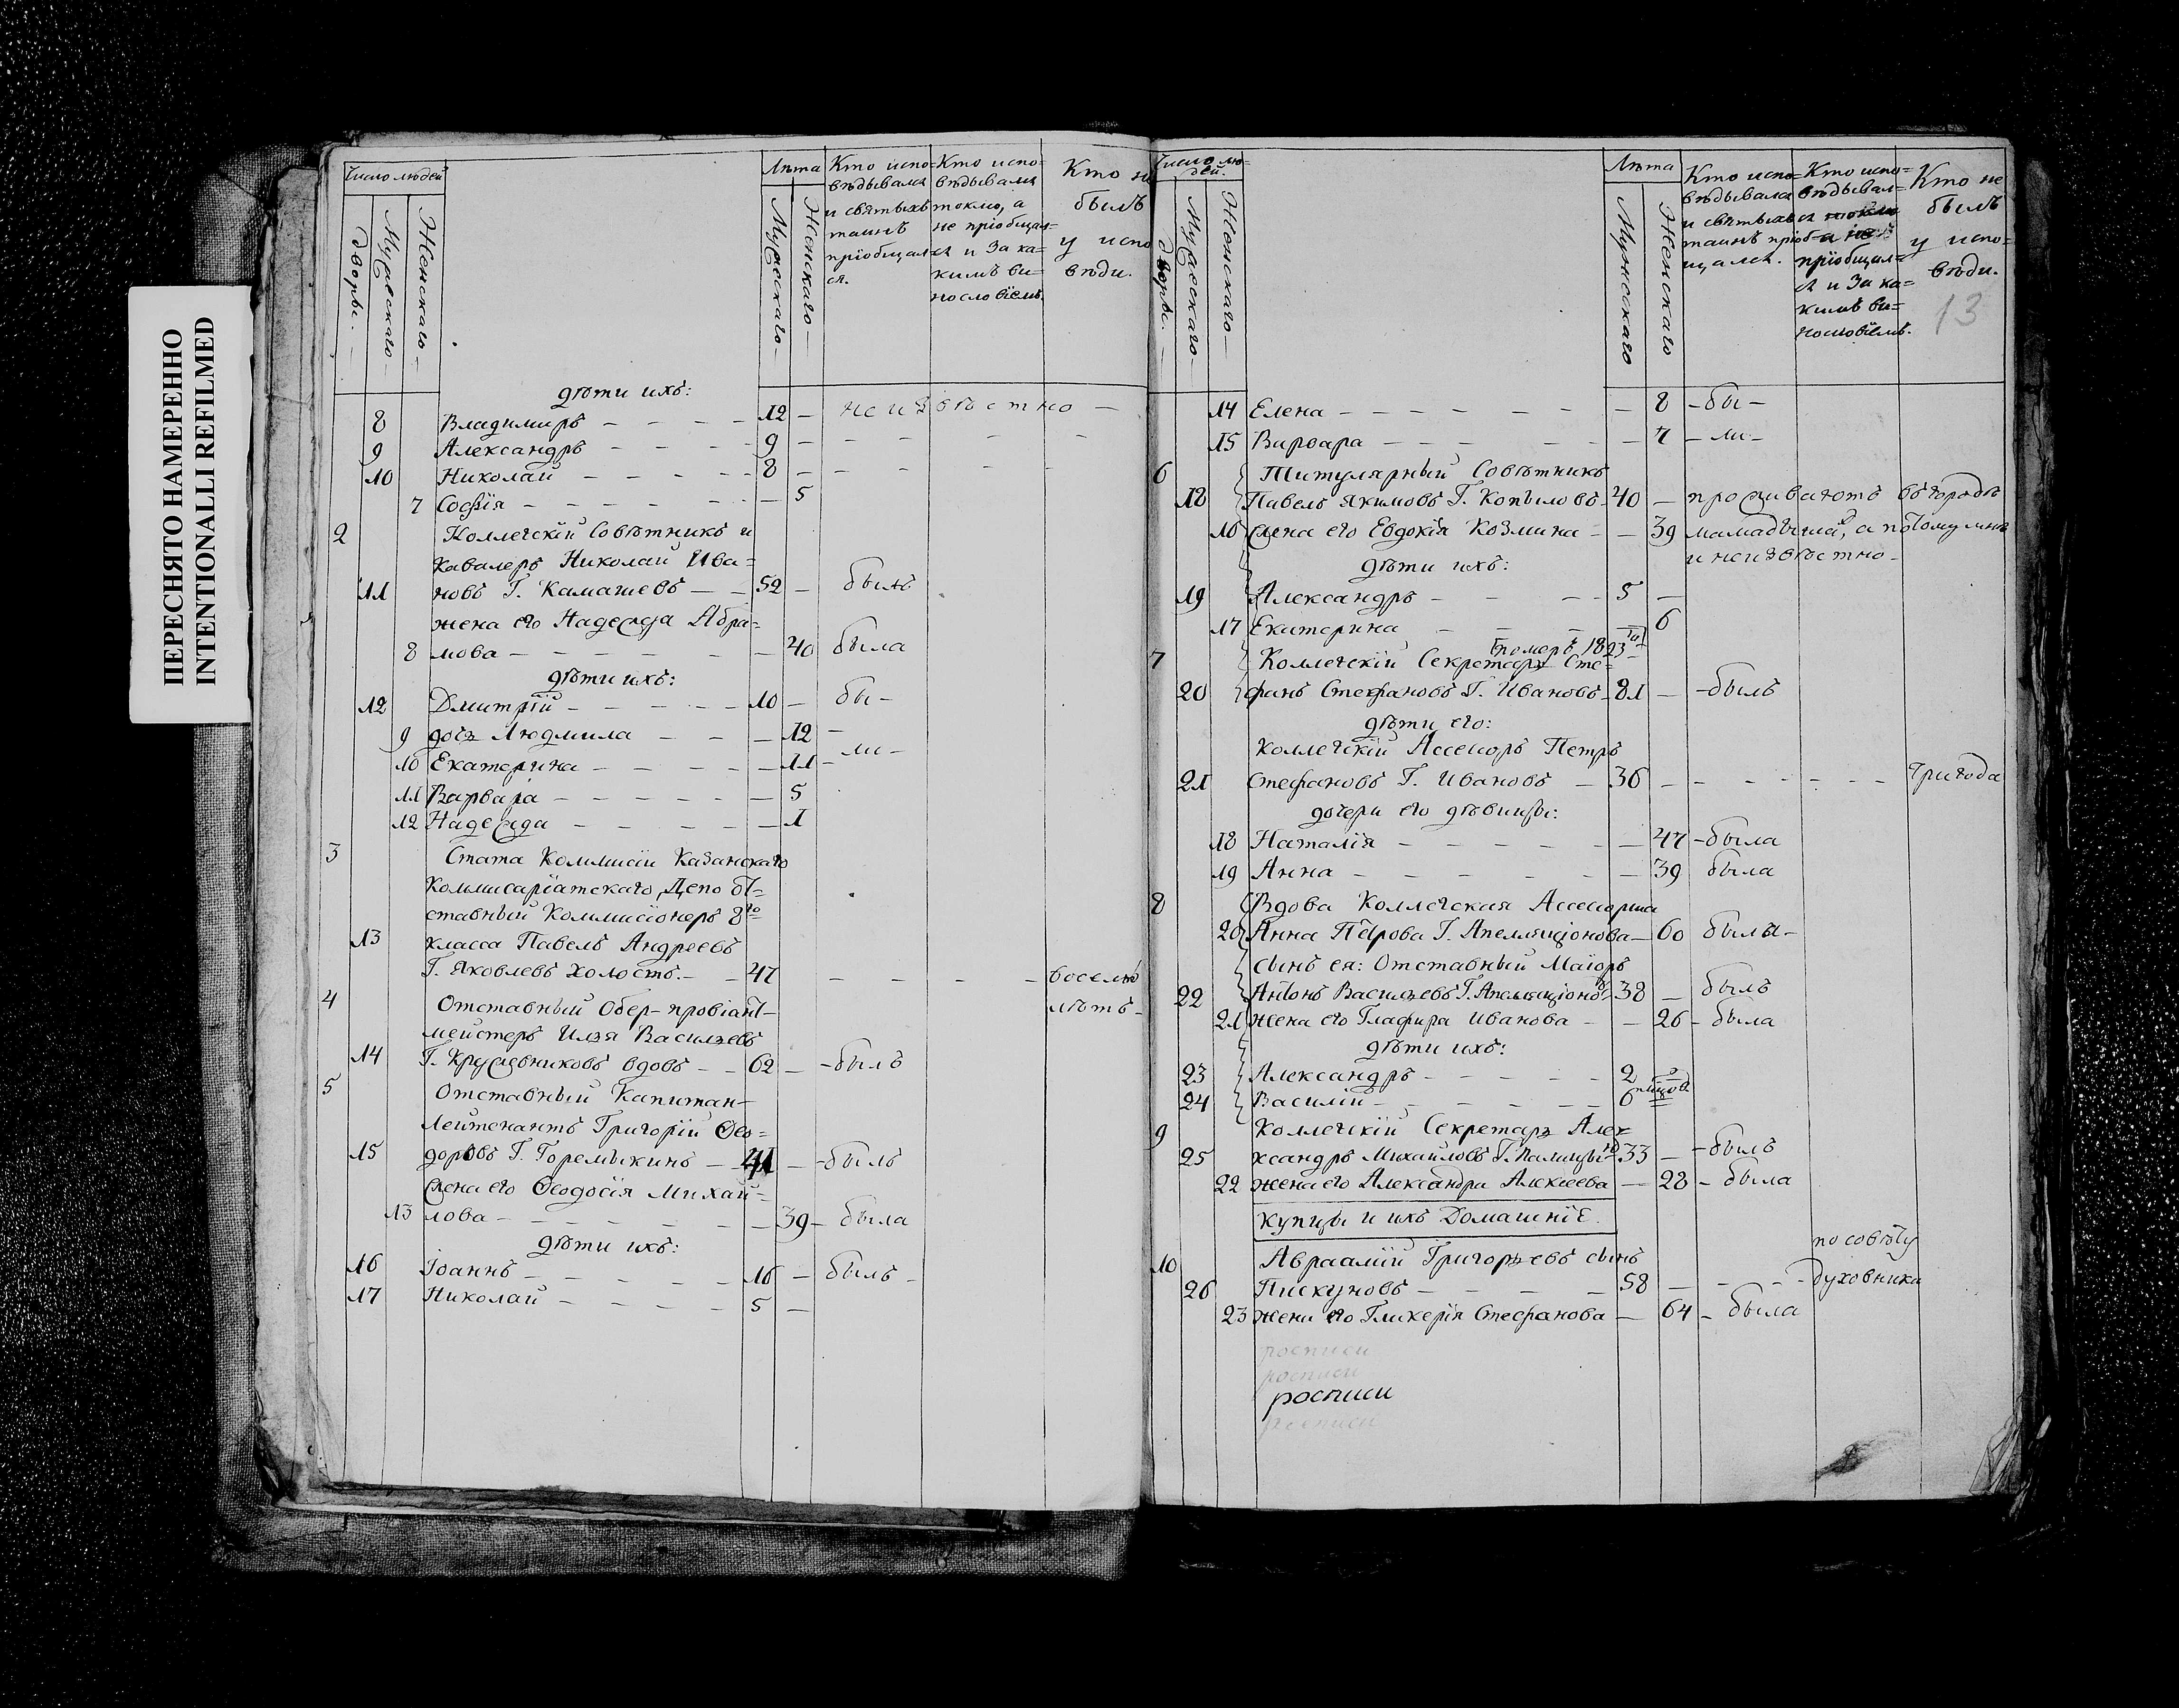 ПЕРЕСНЯТО НАМЕРЕННО
INTENTIONALLI REFILMED
Число людей
дворы.
Мужескаго
Женскаго
Лѣта
Мужескаго
Женскаго
Кто испо=
вѣдывался
и святыхъ
таинъ
пріобщал=
ся.
Кто испо=
вѣдывался
токмо, а
не пріобщал=
ся и за ка=
кимъ ви=
нословіемъ.
Кто не
былъ
у испо
вѣди.
дѣти ихъ:
8 Владимиръ — 12 — неизвѣстно —
9 Александръ — 9 —
10 Николай — 8 —
7 Софія — 5
2 Коллегскій Совѣтникъ и
кавалеръ Николай Ива=
11 новъ Г. Камашевъ — 52 — былъ
жена его Надежда Абра=
8 мова — 40 была
дѣти ихъ:
12 Дмитрій — 10 — бы-
9 дочь Людмила — 12 —
10 Екатерина — 11 — ли-
11 Варвара — 5
12 Надежда — 1
3 Стата Коммисіи Казанскаго
Коммисаріатскаго Депо От=
ставный Коммисіонеръ 8го
13 класса Павелъ Андреевъ
Г. Яковлевъ холостъ. — 47 — восемь
лѣтъ-
4 Отставный Обер-провіант-
мейстеръ Илья Васильевъ
14 Г. Кружевниковъ вдовъ — 62 — былъ
5 Отставный Капитан-
Лейтенантъ Григорій Ѳео=
15 доровъ Г. Горемыкинъ — 41 — былъ
жена его Ѳеодосія Михай=
13 лова — 39 — была
дѣти ихъ:
16 Іоаннъ — 16 — былъ -
17 Николай — 5 —
Число лю=
дей.
дворы.
Мужескаго
Женскаго
Лѣта
Мужескаго
Женскаго
Кто испо=
вѣдывался
и святыхъ
таинъ пріоб-
щался.
Кто испо=
вѣдывал=
ся токмо
а не
пріобщал=
ся и за ка=
кимъ ви=
нословіемъ.
Кто не
былъ
у испо=
вѣди.
13
14 Елена — 8 — бы —
15 Варвара — 7 — ли -
6 Титулярный Совѣтникъ
18 Павелъ Якимовъ Г. Копыловъ 40 — проживаютъ въ городѣ
16 жена его Евдокія Козмина — 39 мамадыша, а потому мнѣ
и неизвѣстно -
дѣти ихъ:
19 Александръ — 5 —
17 Екатерина — 6
померъ 1823
7 Коллегскій Секретарь Сте=
20 фанъ Стефановъ Г. Ивановъ 81 — былъ
дѣти его:
Коллегскій Ассесоръ Петръ
21 Стефановъ Г. Ивановъ — 36 — три года
дочери его дѣвицы:
18 Наталія — 47 — была
19 Анна — 39 была
8 Вдова Коллегская Ассесорша
20 Анна Петрова Г. Апелляціонова — 60 была —
сынъ ея: Отставный Маіоръ
22 Антонъ Васильевъ Г. Апелляціоновъ 38 — былъ
21 жена его Глафира Иванова — 26 — была
дѣти ихъ:
23 Александръ — 2
24 Василій — 6
9 Коллегскій Секретарь Алек
25 ксандръ Михайловъ Г. Палицынъ 33 — былъ
22 жена его Александра Алексеева — 28 — была
Купцы и ихъ Домашніе.
по совѣту
10 Авраамій Григорьевъ сынъ
26 Пискуновъ — 58 — духовника
23 жена его Гликерія Стефанова — 64 — была
росписи
росписи
росписи
росписи